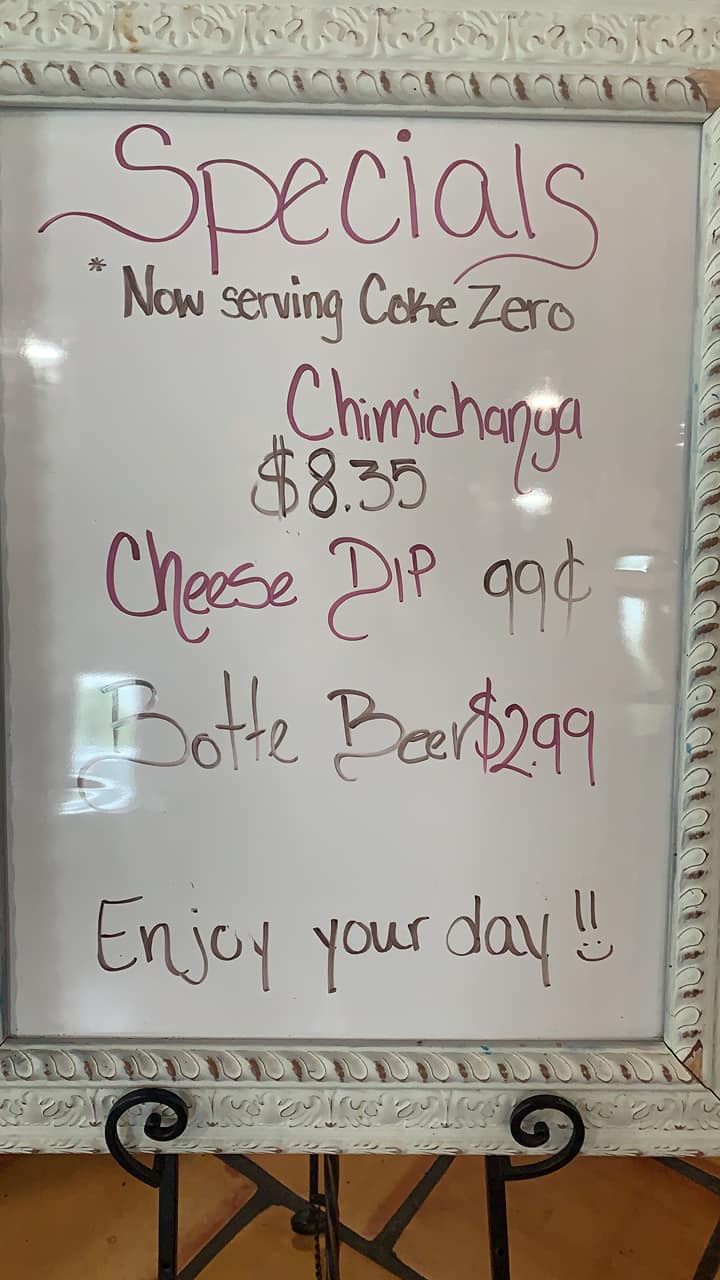 Specials
* Now serving Coke Zero
Chimichanga
$8.35
Cheese Dip 99¢
Botte Beer $2.99
Enjoy your day !!